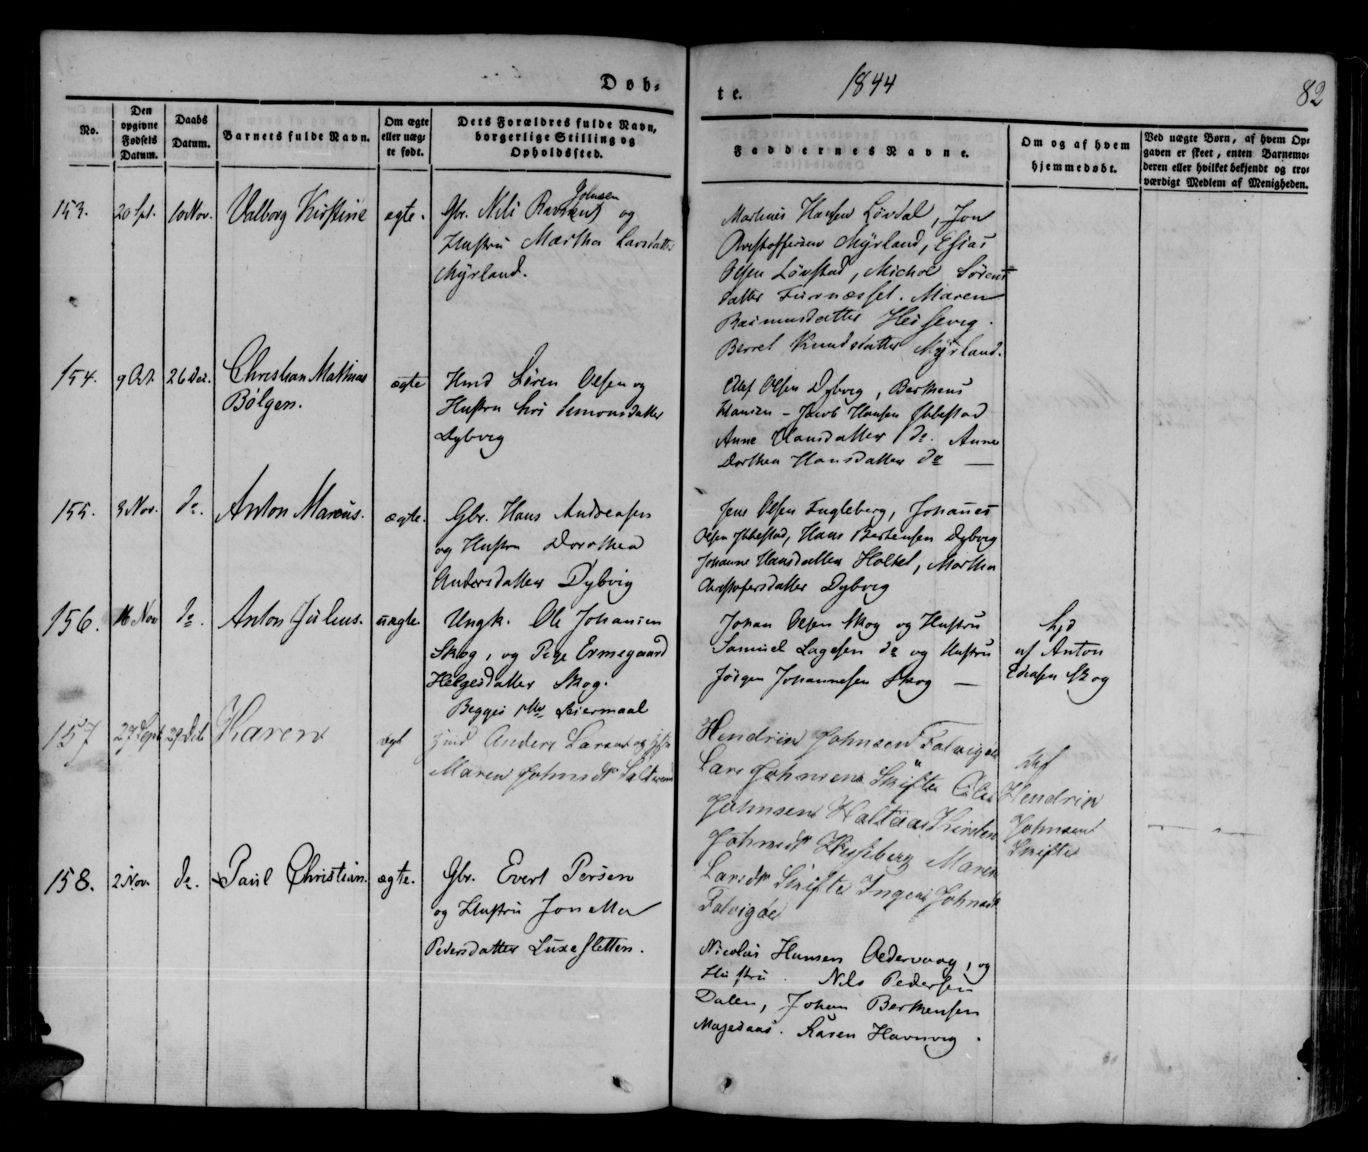 Døb-
te.
1844
82
No.
Den
opgivne
Fødsels
Datum.
Daabs
Datum.
Barnets fulde Navn.
Om ægte
eller uæg-
te født.
Dets Forældres fulde Navn,
borgerlige Stilling og
Opholdssted.
Faddernes Navne.
Om og af hvem
hjemmedøbt.
Ved uægte Børn, af hvem Op-
gaven er skeet, enten Barnemo-
deren eller hvilket bekjendt og tro-
værdigt Medlem af Menigheden.
153. 20 Spt. 10 Nov. Valborg Kirstine egte.
Gbr. Nils Johnsen og
Hustru Martha Larsdatter
Myrland.
Martinus Hansen Løvdal, Jon
Christoffersen Myrland, Esias
Olsen Løvstad, Michol Sørens
datter Furnæsset. Maren
Rasmusdatter Hessevig.
Berret Knudsdatter Myrland.
154. 9 Oct. 26 Dec. Christian Mathias
Bølgen.
ægte
Hmd Søren Olsen og
Hustru Simonsdatter
Dybvig
Olef Olsen Dybvig, Bertheus
Hansen - Jacob Hansen Ibbestad
Anne Hansdatter do. Anne
Dorthea Hansdatter do —
155. 3 Nov. do. Anton Marcus. ægte.
Gbr. Hans Andreasen
og Hustru Dorothea
Andersdatter Dybvig
Jens Olsen Engleberg, Johannes
Olsen Ibbestad, Hans Berthensen Dybvig
Johanne Hansdatter Holtet, Martha
Christofersdatter Dybvig
156. 16 Nov do. Anton Julius. uægte
Ungk. Ole Johansen
Skog, og Pige Ermegaard
Helgesdatter Skog.
Begges 1ste Leiermaal
Johan Olsen Skog og Hustru
Samuel Lagesen do og Hustru
Jørgen Johannesen Skog —
hjd
af Anton
Eliasen Skog
157 27 Sept 29 Dcb Karen egt
Anders Larsen og
Maren Johnsdr
Hendrik Johnsen Falvigøe
Lars Johnsen Skifte Ole
Johnsen Kirsten
Johnsdr Maren
Larsdr Skifte Inger Johnsdr
Falvigøe
Af
Hendrik
Johnsen
Skifte
158. 2 Nov. do. Paul Christian. ægte.
Gbr. Evert Persen
og Hustru Jonetta
Pedersdatter Luxesletten.
Nicolai Hansen Oedervaag, og
Hustru. Nils Pedersen
Dalen, Johan Berthensen
Magedaas. Karen Havnvig.